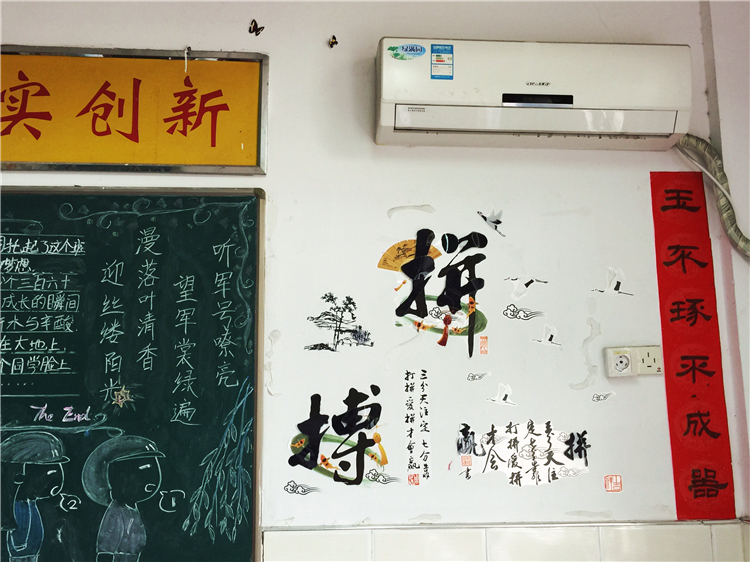 实创新
托起了这个班
梦想
个三百六十
成长的瞬间
水与辛酸
在大地上
个同学脸上
......
听军号嘹亮
望军裳绿遍
漫落叶清香
迎丝缕阳光
The End
2
1
拼
搏
三分天注定 七分靠
打拼 爱拼才会赢
拼
三分天注
定七分靠
打拼爱拼
才会
赢
玉不琢不成器